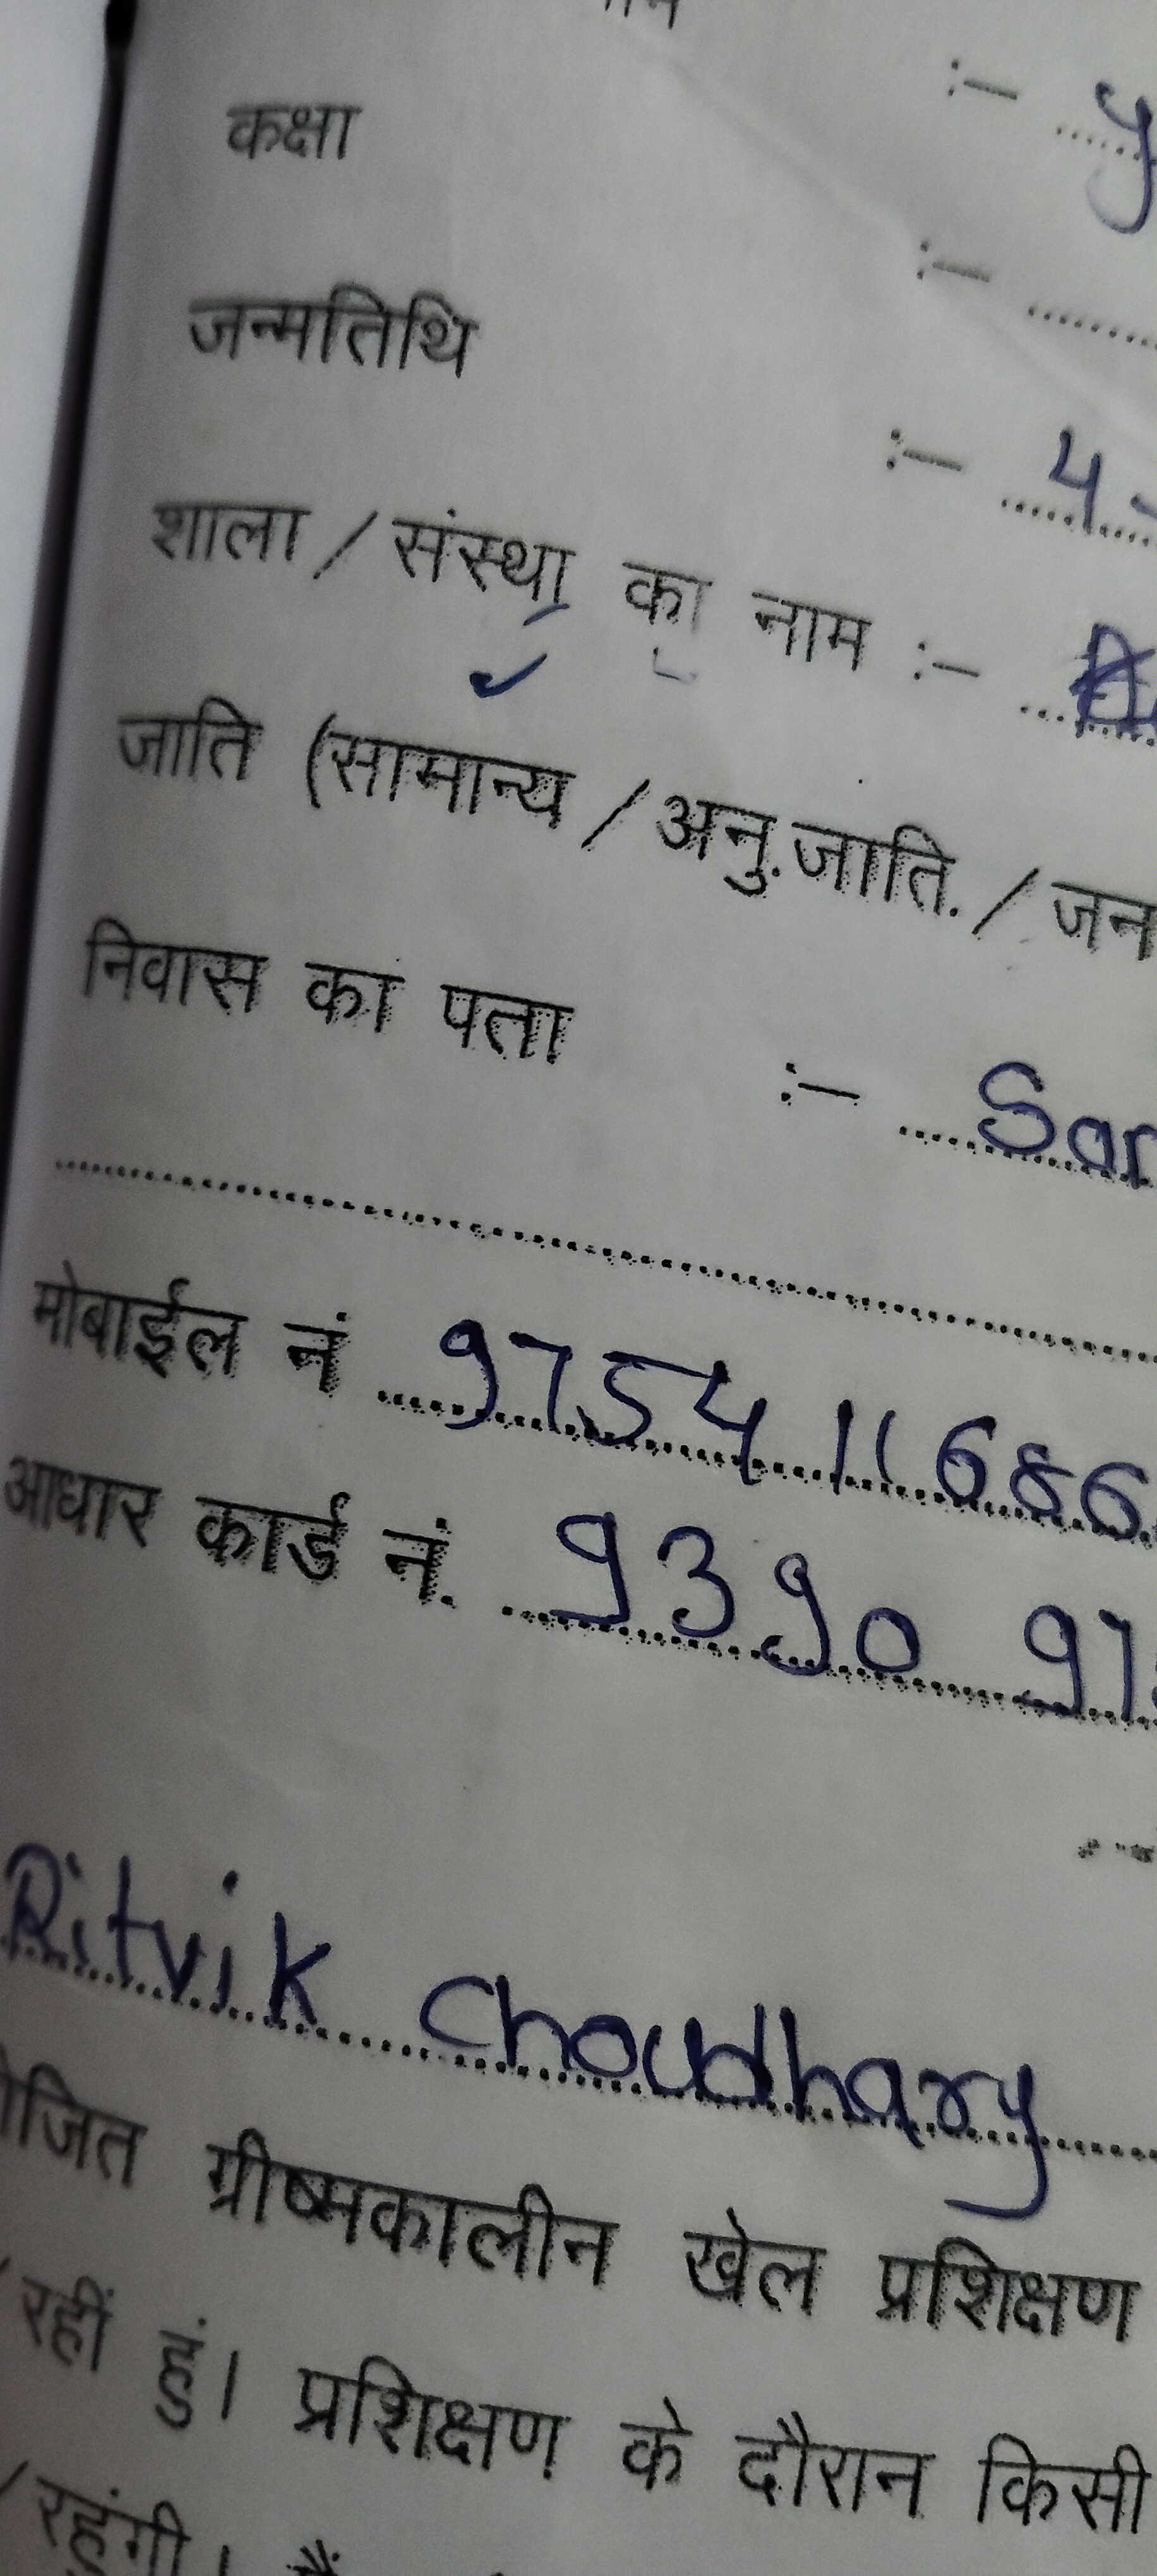 कक्षा :–
जन्मतिथि :–
:– 4-
शाला / संस्था का नाम :–
जाति (सामान्य / अनु.जाति. / जन
निवास का पता :– Sar
मोबाईल नं 975411686
आधार कार्ड नं. 9390 97
Ritvik Choudhary
ोजित ग्रीष्मकालीन खेल प्रशिक्षण
रहीं हुं। प्रशिक्षण के दौरान किसी
/ रहुंगी।